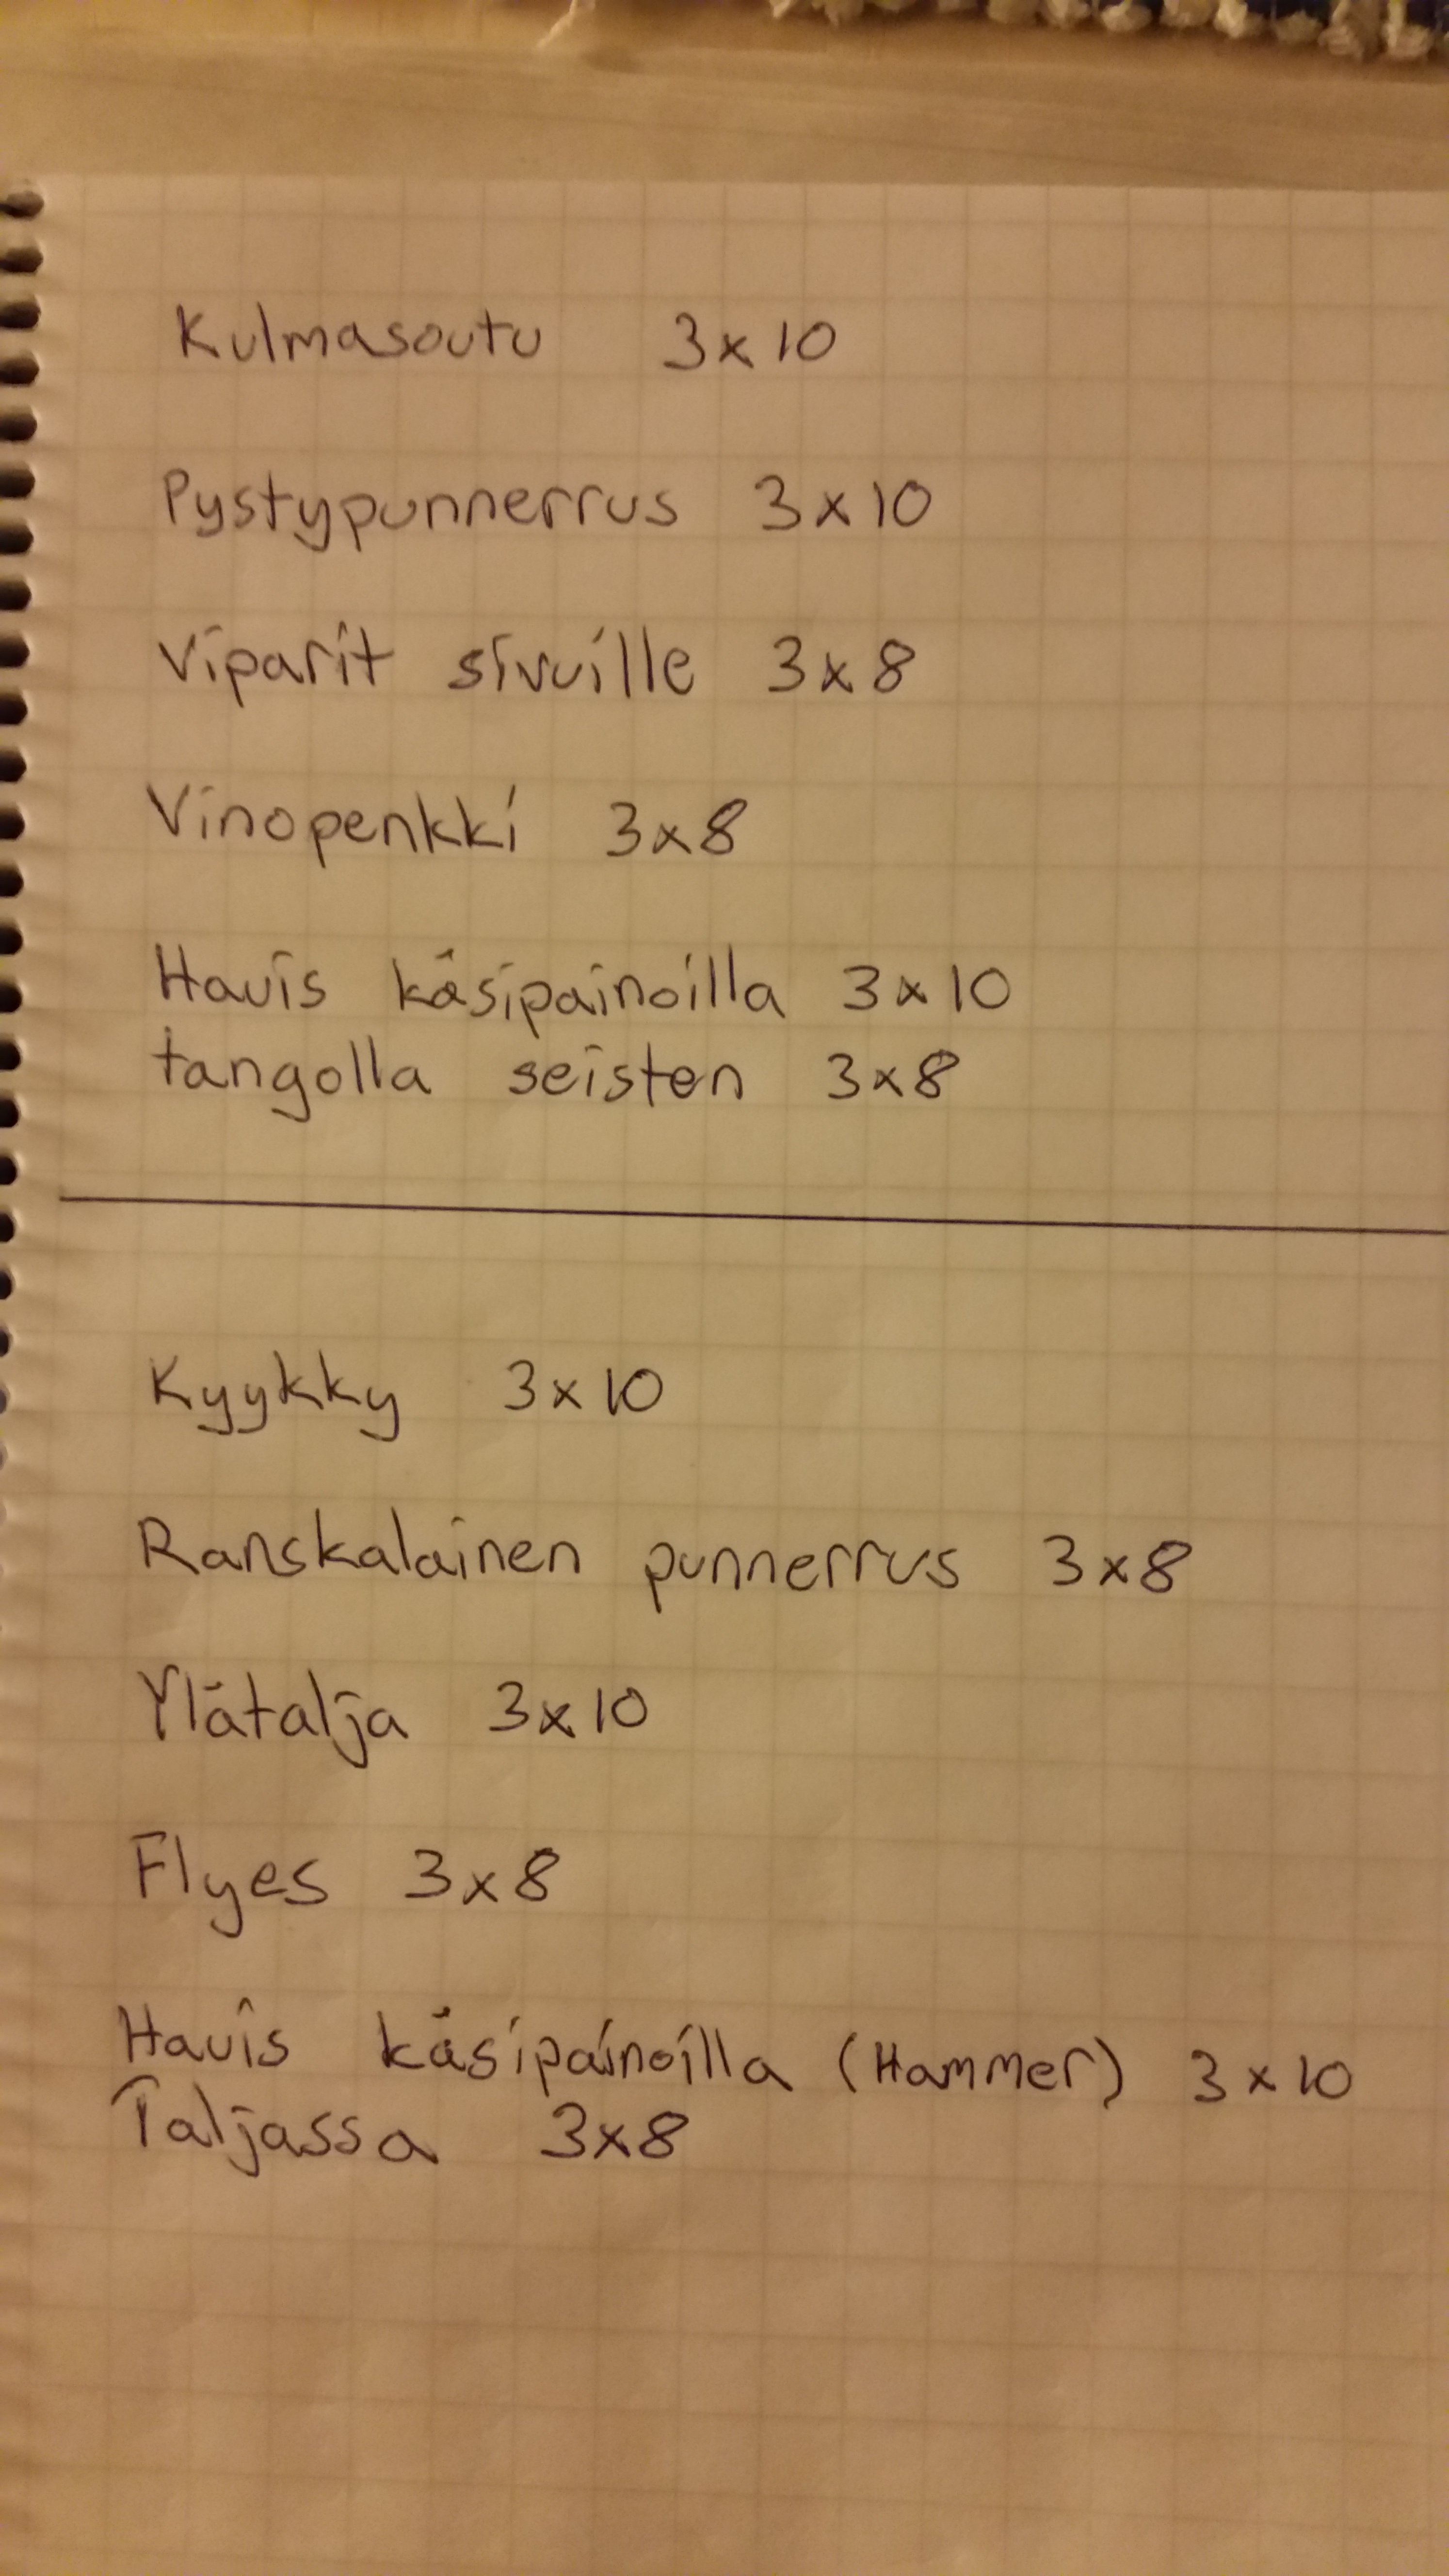 Kulmasoutu 3x10
Pystypunnerrus 3x10
Viparit sivuille 3x8
Vinopenkki 3x8
Hauis käsipainoilla 3x10
tangolla seisten 3x8
Kyykky 3x10
Ranskalainen punnerrus 3x8
Ylätalja 3x10
Flyes 3x8
Hauis käsipainoilla (Hammer) 3x10
Taljassa 3x8